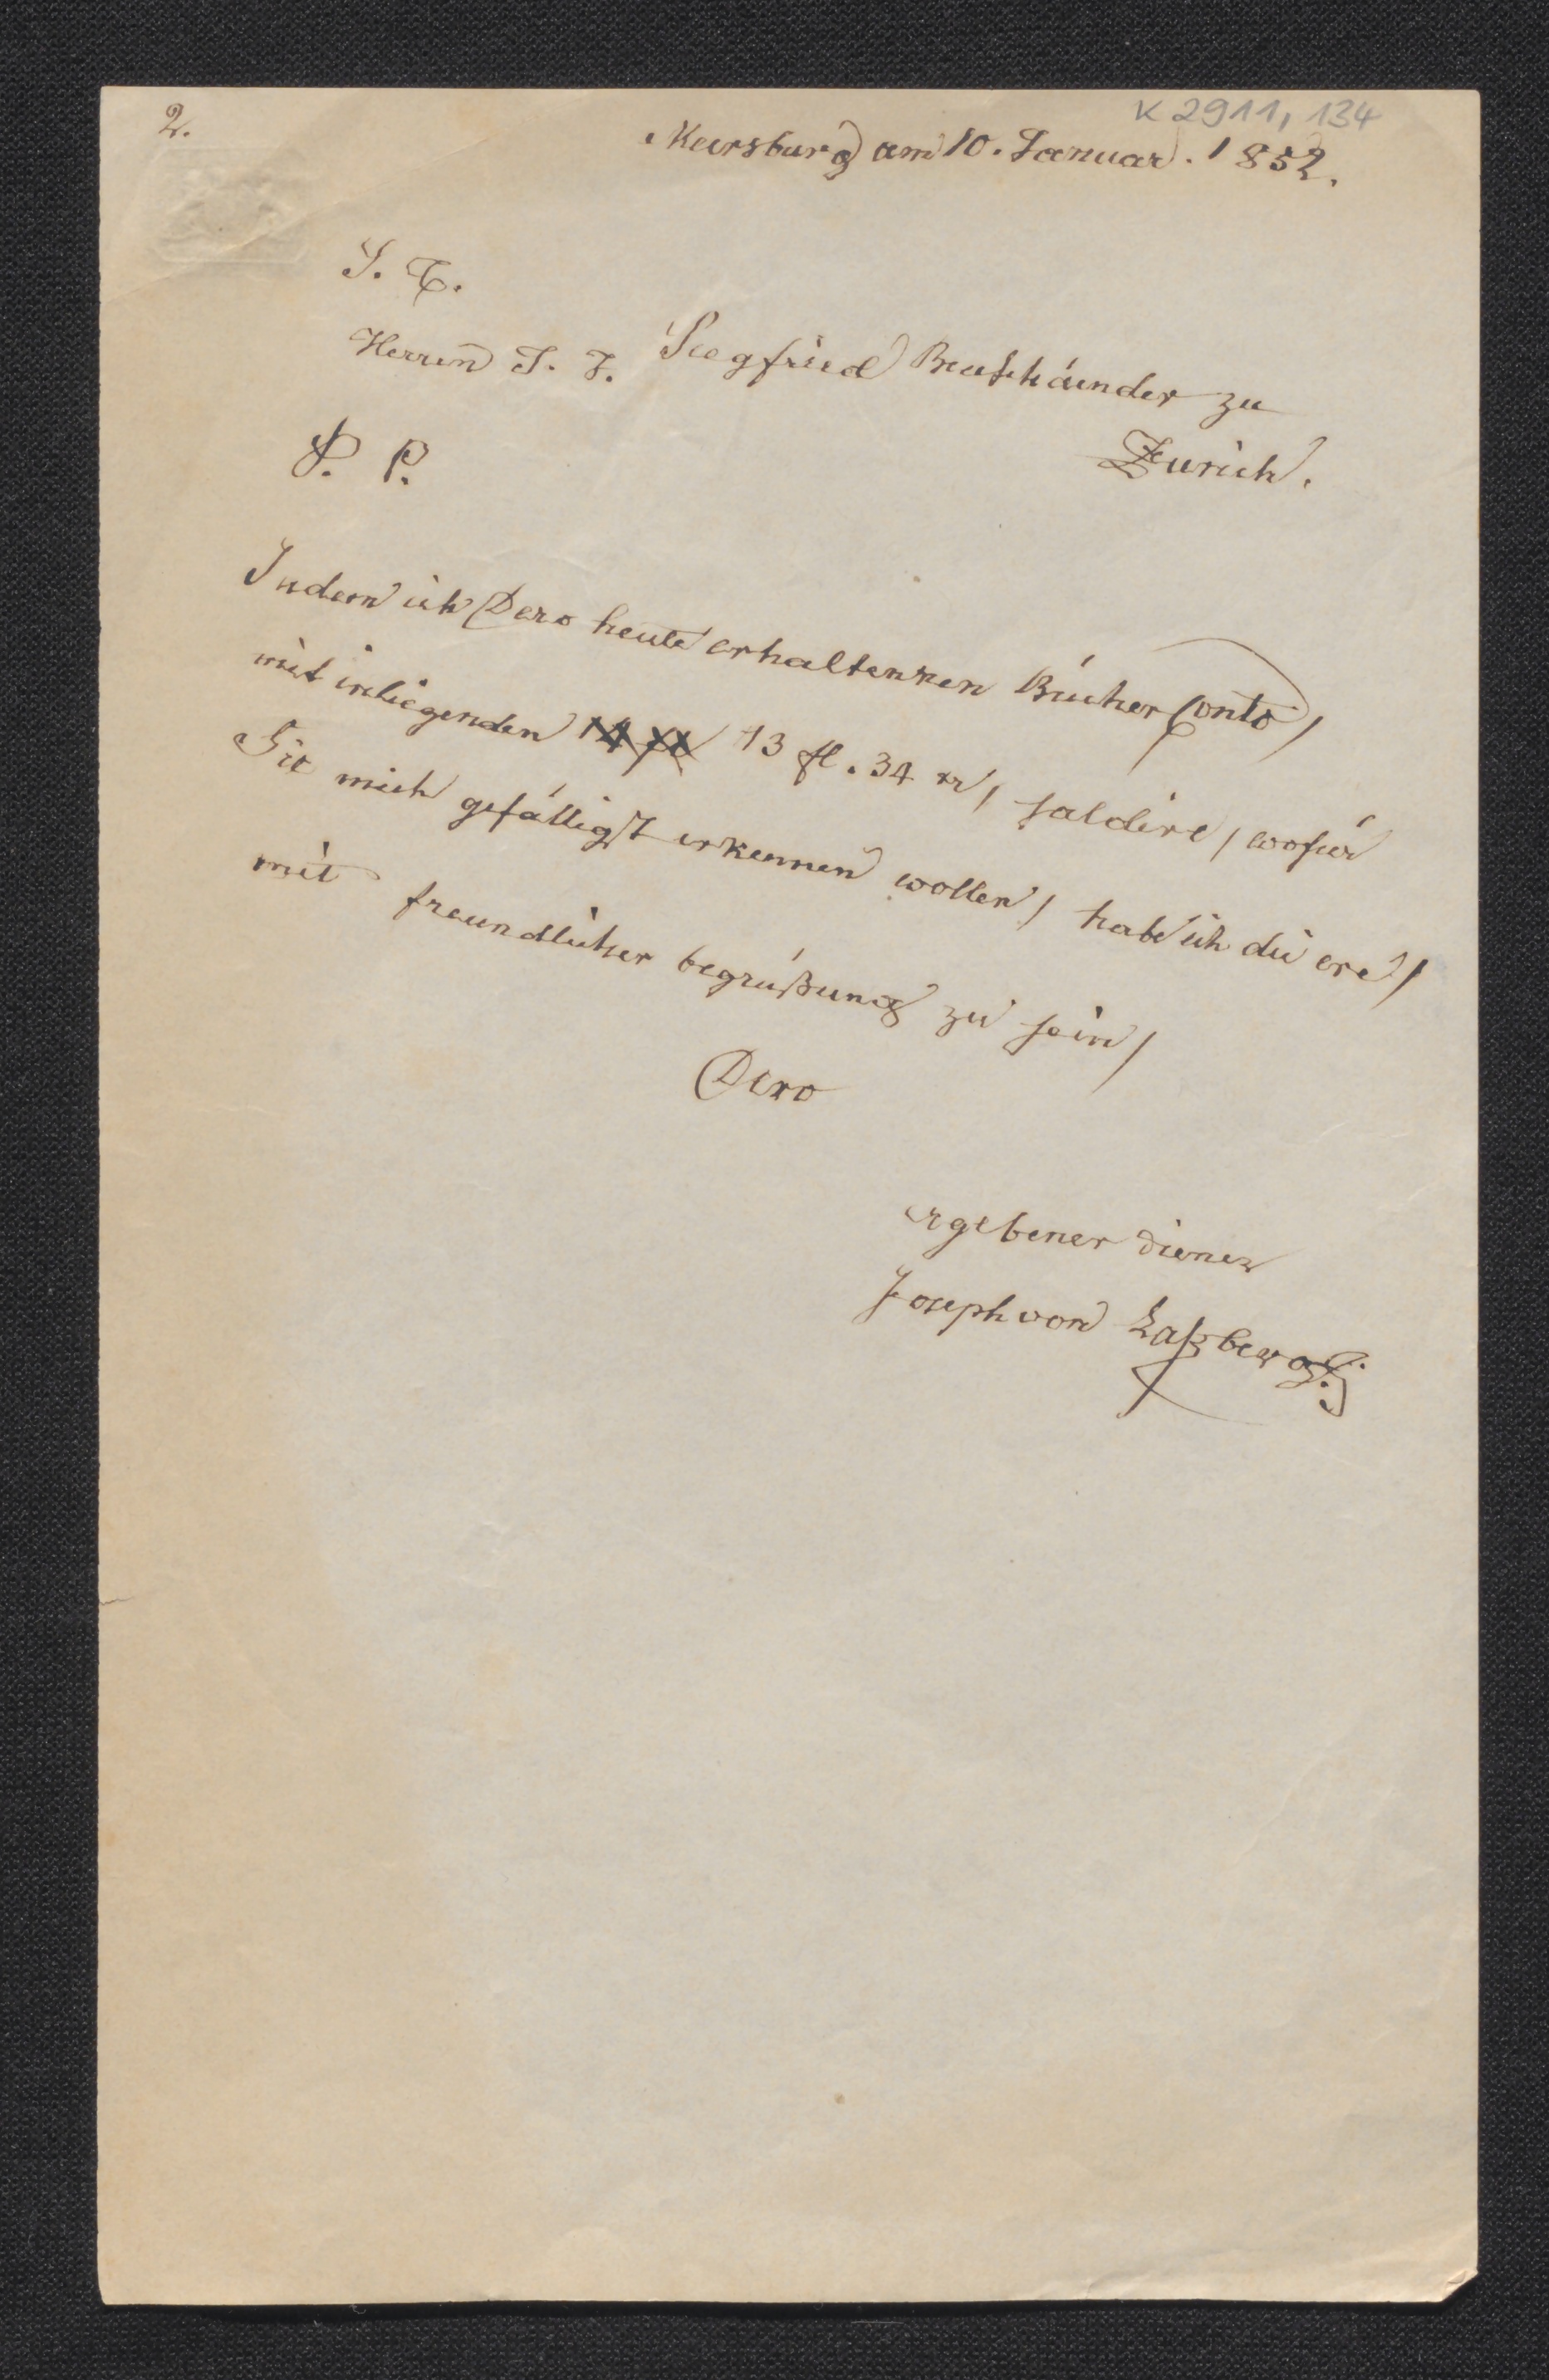 K 2911, 134
2.
Meersburg am 10. Januar. 1852.
S. T.
Herren J. J. Siegfried Buchhändler zu
Zürich.
P. P.
Indem ich Dero heute erhaltennen Bücher Conto,
mit inliegenden 13 fl. 34 xr, saldire, wofür
Sie mich gefälligst erkennen wollen, habe ich die ere,
mit freundlicher begrüßung zu sein,
Dero
ergebener diener
Joseph von Laßberg.